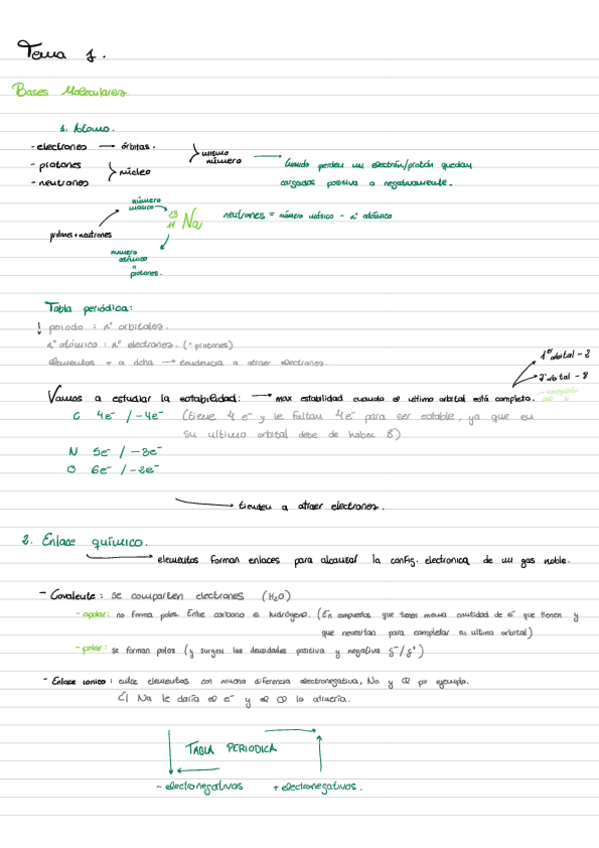 Tema 1.
Bases Moleculares.
1. Átomo.
- electrones → órbitas.
- protones
- neutrones
núcleo
mismo número
Cuando pierden un electrón/protón quedan
cargados positiva o negativamente.
número másico
23
11 Na
neutrones = número másico - nº atómico
protones + neutrones
número atómico = protones.
Tabla periódica:
! periodo : nº orbitales.
nº atómico : nº electrones. (= protones)
elementos + a dcha → tendencia a atraer electrones.
1er orbital - 2
2º orbital - 8
Vamos a estudiar la estabilidad: → max estabilidad cuando el ultimo orbital está completo.
C 4e⁻ / -4e⁻ (tiene 4 e⁻ y le faltan 4e⁻ para ser estable, ya que en
su ultimo orbital debe de haber 8)
N 5e⁻ / -3e⁻
O 6e⁻ / -2e⁻
→ tienden a atraer electrones.
2. Enlace químico.
→ elementos forman enlaces para alcanzar la config. electronica de un gas noble.
- Covalente : se comparten electrones (H₂O)
- apolar : no forma polos. Entre carbono e hidrógeno. (En compuestos que tienen misma cantidad de e⁻ que tienen y
que necesitan para completar su ultimo orbital)
- polar : se forman polos (y surgen las densidades positiva y negativa δ⁻/δ⁺)
- Enlace ionico : entre elementos con mucha diferencia electronegativa, Na y Cl por ejemplo.
El Na le daría el e⁻ y el Cl lo atraería.
TABLA PERIODICA
- electronegativos + electronegativos.